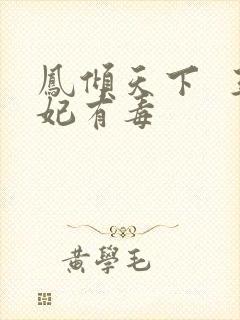 鳳傾天下
妃有毒
黃學毛